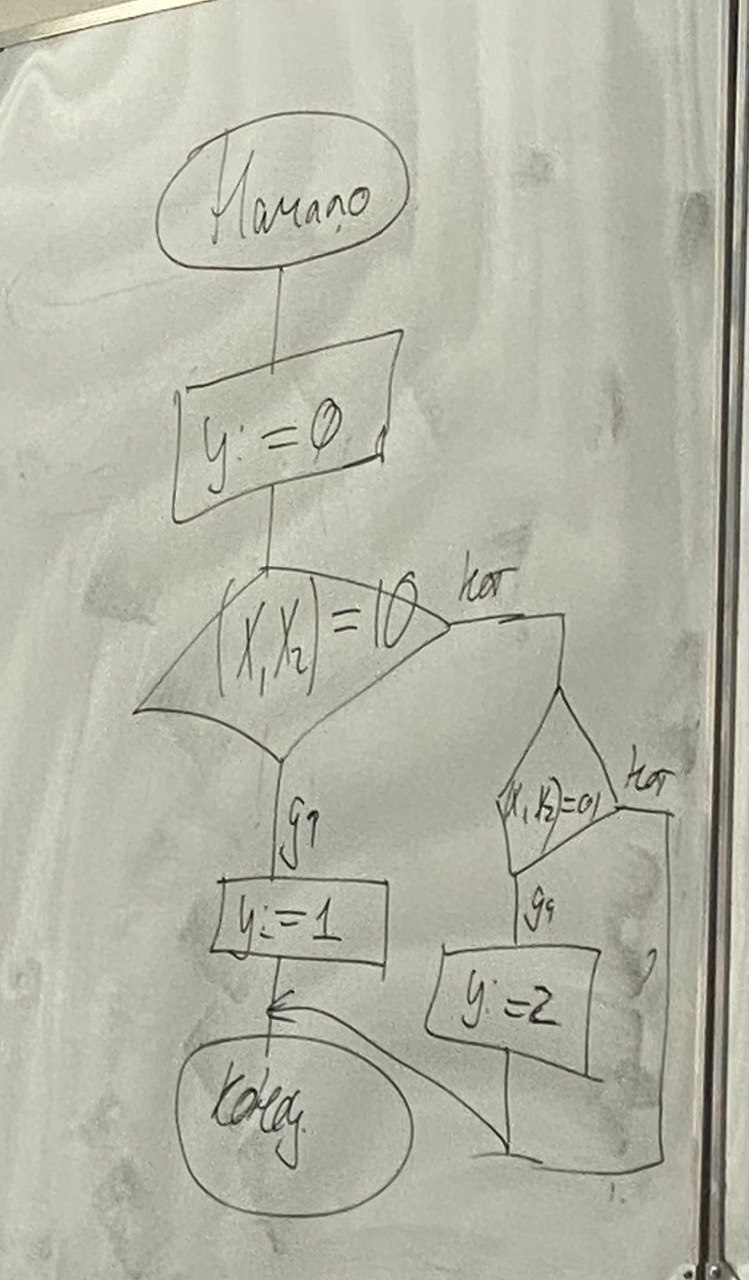 Начало
y:=0
(X₁X₂)=10
нет
да
(X₁X₂)=01
нет
y:=1
да
y:=2
Конец